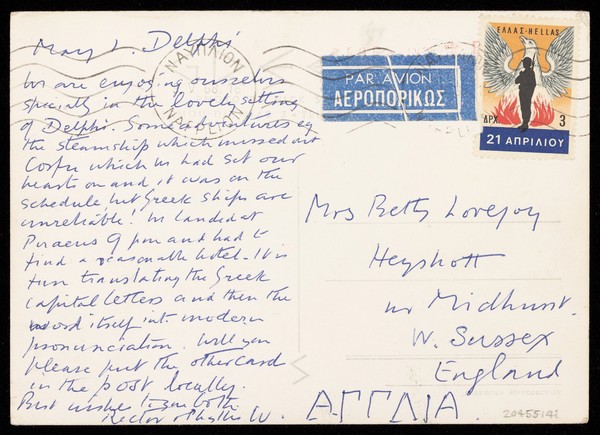 May 2. Delphi
We are enjoying ourselves
specially in the lovely setting
of Delphi. Some adventures eg
the steamship which missed out
Corfu which we had set our
hearts on and it was on the
schedule but Greek ships are
unreliable! We landed at
Piraeus 9 pm and had to
find a reasonable hotel. It is
fun translating the Greek
capital letters and then the
word itself into modern
pronunciation. Will you
please put the other card
in the post locally.
Best wishes to you both
Hector & Phyllis W.
ΝΑΥΠΛΙΟΝ
NAFPLION
PAR AVION
ΑΕΡΟΠΟΡΙΚΩΣ
ΕΛΛΑΣ-HELLAS
ΔΡΧ. 3
21 ΑΠΡΙΛΙΟΥ
Mrs Betty Lovejoy
Heyshott
nr Midhurst.
W. Sussex
England
ΑΓΓΛΙΑ.
20455142